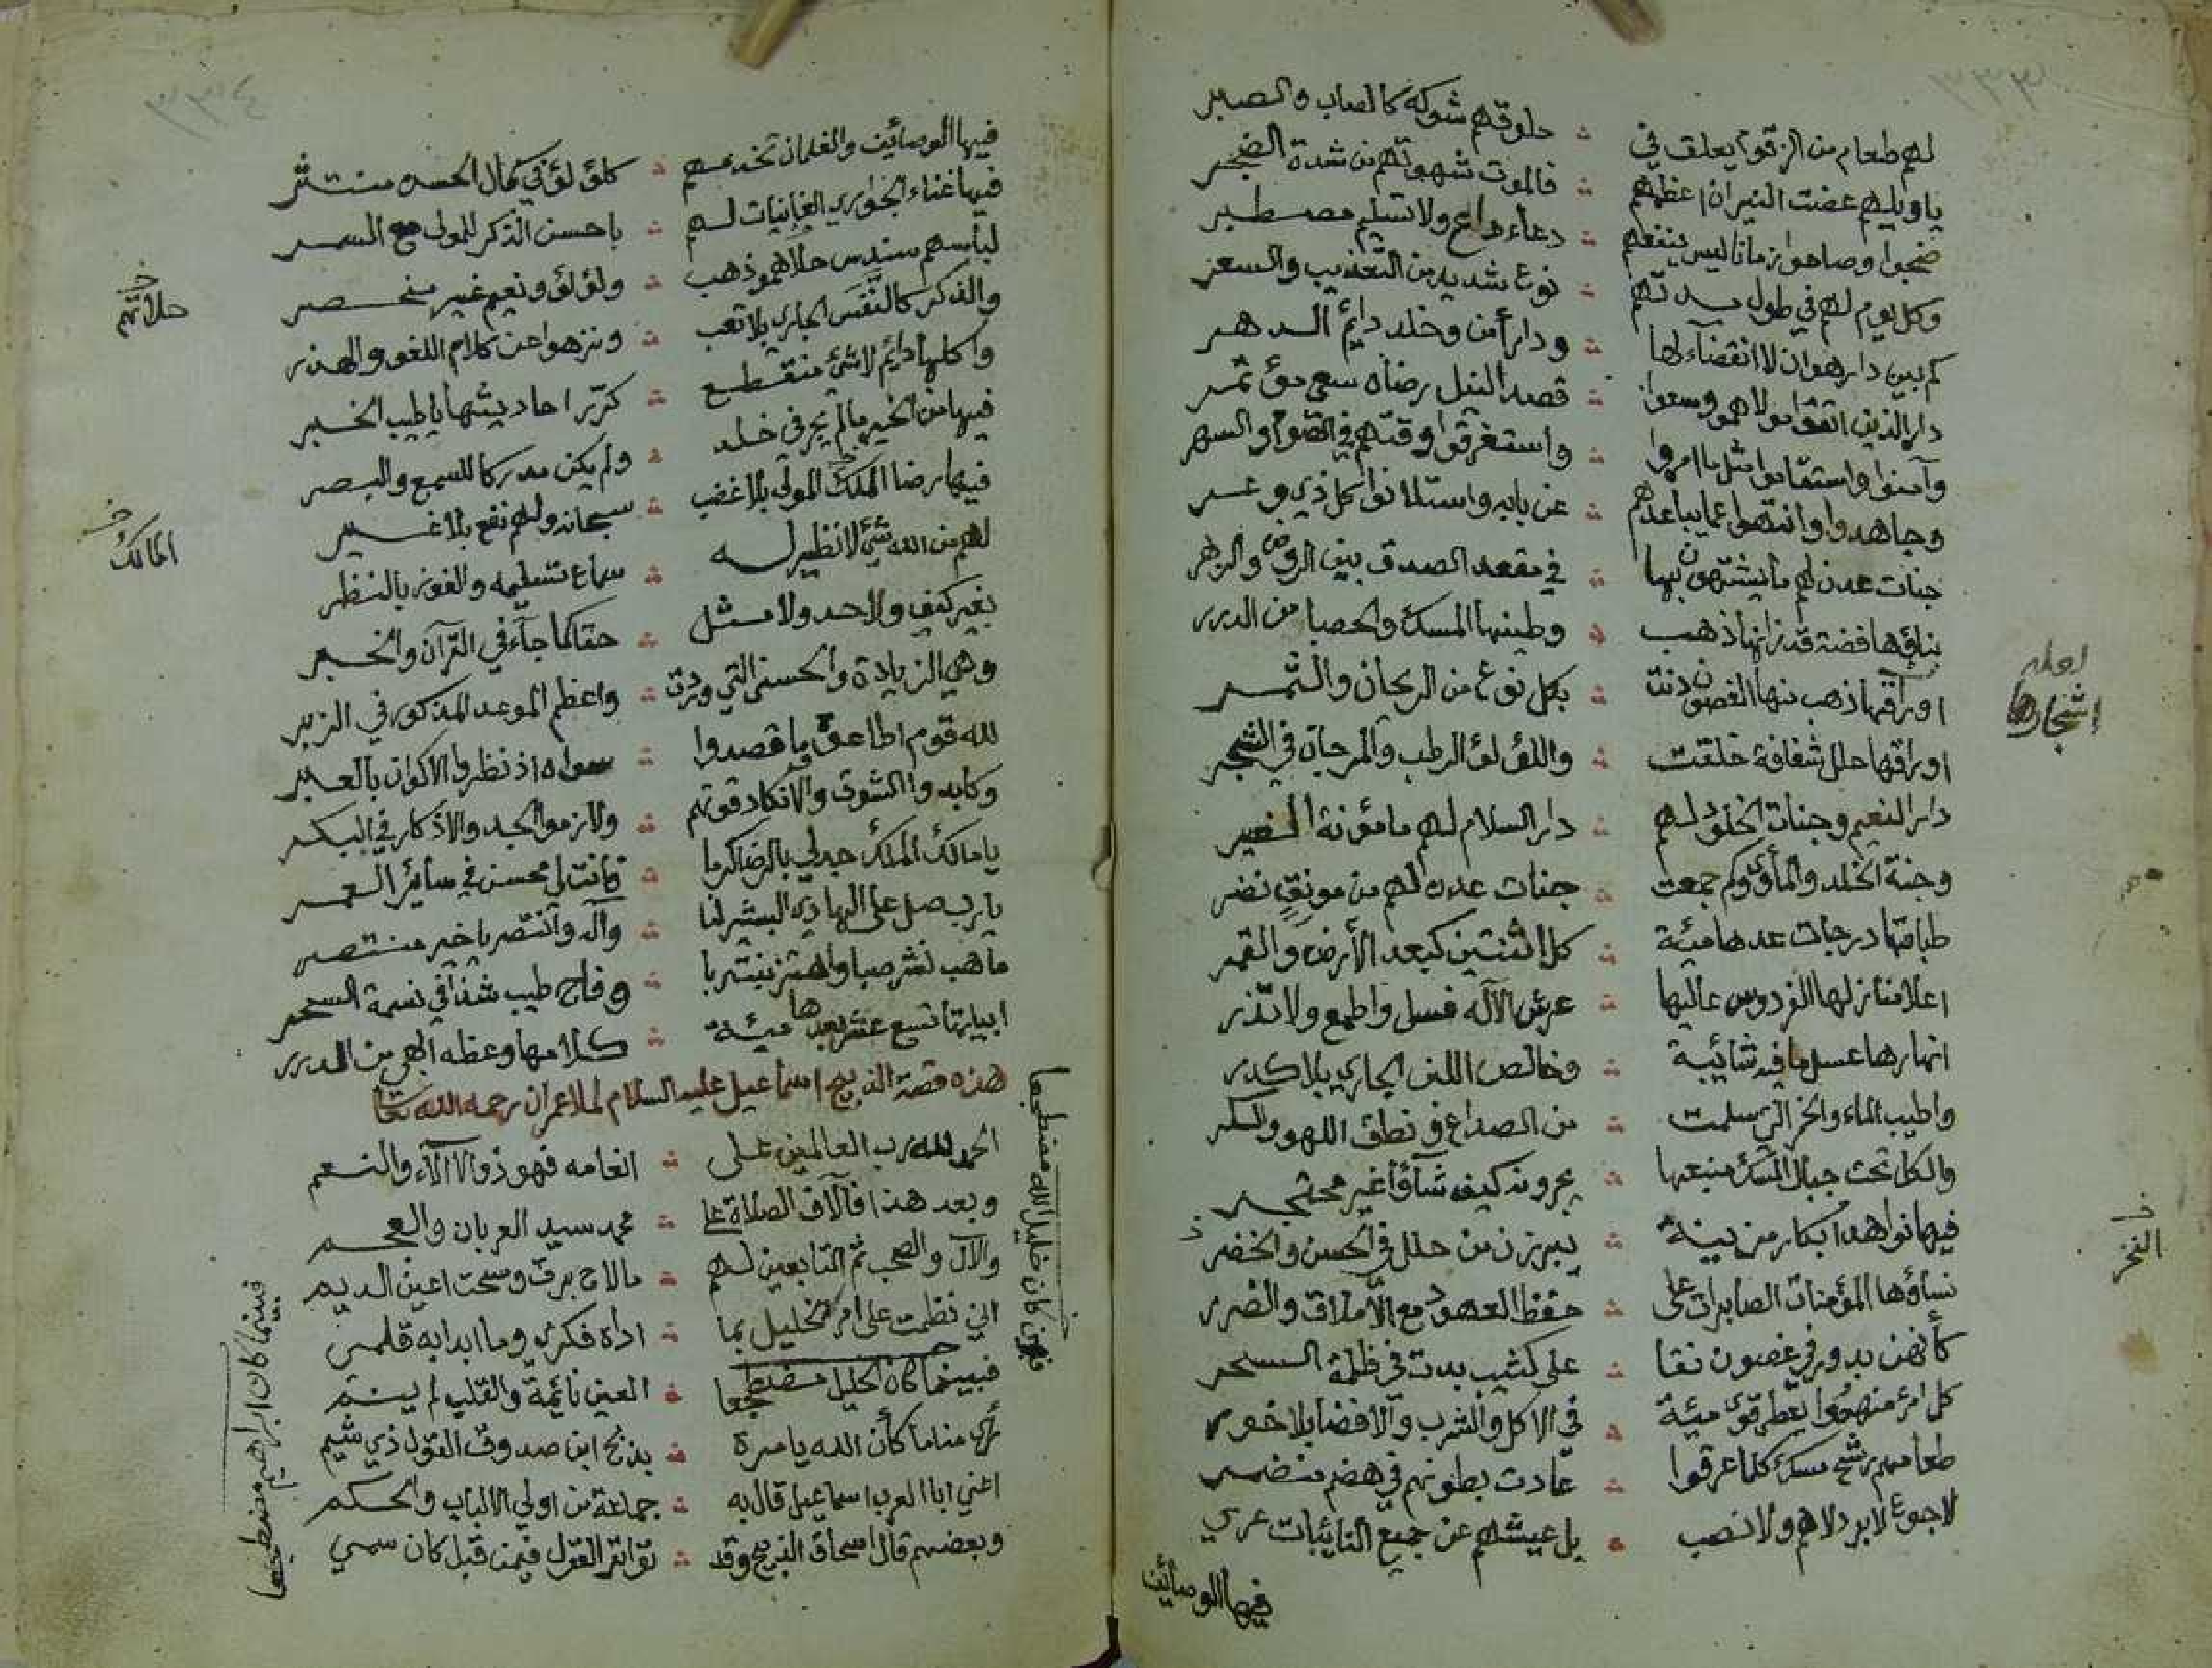 ٣٣٣
لهم طعام من الزقوم يعلق في ∴ حلوقهم شوكه كالصاب والصبر
يا ويلهم عضت النيران اعظمهم ∴ فالموت شهوتهم من شدة الضجر
ضجوا وصاحوا زمانا ليس ينفعهم ∴ دعاء داع ولا تسليم مصطبر
وكل يوم لهم في طول مدتهم ∴ نوع شديد من التعذيب والسعر
كم بين دار هوان لا انقضاء لها ∴ ودار أمن وخلد دائم الدهر
دار الذين اتقوا مولاهمو وسعوا ∴ قصدا لنيل رضاه سعي مؤتمر
وآمنوا واستقاموا مثل ما امروا ∴ واستغرقوا وقتهم في الصوم والسهر
وجاهدوا وانتهوا عما يباعدهم ∴ عن بابه واستلانوا كل ذي وعر
جنات عدن لهم ما يشتهون بها ∴ في مقعد الصدق بين الروض والزهر
بناؤها فضة قد زانها ذهب ∴ وطينها المسك والحصبا من الدرر
اوراقها ذهب منها الغصون دنت ∴ بكل نوع من الريحان والثمر
لعله
اشجارها
اوراقها حلل شفافة خلقت ∴ واللؤلؤ الرطب والمرجان في الشجر
دار النعيم وجنات الخلود لهم ∴ دار السلام لهم مامؤنة الغير
وجنة الخلد والمأوى وكم جمعت ∴ جنات عدن لهم من مونق نضر
طباقها درجات عدها مئة ∴ كل اثنتين كبعد الأرض والقمر
اعلا منازلها الفردوس عاليها ∴ عرش الآله فسل واطمع ولا تذر
انهارها عسل ما فيه شائبة ∴ وخالص اللبن الجاري بلا كدر
واطيب الماء والخمر التي سلمت ∴ من الصداع ونطق اللهو والسكر
والكل تحت جبال المسك منبعها ∴ يجرونه كيف شاؤا غير محتجر
فيها نواهد ابكار مزينة ∴ يبرزن من حلل في الحسن والخضر
خ
الفخر
نساؤها المؤمنات الصابرات على ∴ حفظ العهود مع الأملاق والضرر
كأنهن بدور في غصون نقا ∴ على كثيب بدت في ظلمة السحر
كل امرئ منهمو يعطى قوى مئة ∴ في الاكل والشرب والافضا بلا خور
طعامهم رشح مسك كلما عرقوا ∴ عادت بطونهم في هضم منضمر
لا جوع لا برد لا هم ولا نصب ∴ بل عيشهم عن جميع النائبات عري
فيها الوصائف
٣٣٤
فيها الوصائف والغلمان تخدمهم ∴ كلؤلؤ في كمال الحسن منتثر
فيها غناء الجواري الغانيات لهم ∴ باحسن الذكر للمولى مع السمر
لباسهم سندس حلاهمو ذهب ∴ ولؤلؤ ونعيم غير منحصر
خ
حلاتهم
والذكر كالنفس الجاري بلا تعب ∴ ونزهوا عن كلام اللغو والهذر
واكلها دائم لا شئ منقطع ∴ كرر احاديثها يا طيب الخبر
فيها من الخير ما لم يجر في خلد ∴ ولم يكن مدركا للسمع والبصر
فيها رضا الملك المولى بلا غضب ∴ سبحانه ولهم نفع بلا غير
خ
المالك
لهم من الله شئ لا نظير له ∴ سماع تسليمه والفوز بالنظر
بغير كيف ولا حد ولا مثل ∴ حقا كما جآء في القرآن والخبر
وهي الزيادة والحسنى التي وردت ∴ واعظم الموعد المذكور في الزبر
لله قوم اطاعوه ما قصدوا ∴ سواه اذ نظروا الاكوان بالعبر
وكابدوا الشوق والانكاد قوتهم ∴ ولازموا الجد والاذكار في البكر
يا مالك الملك جد لي بالرضا كرما ∴ فانت لي محسن في سائر العمر
يا رب صل على الهادي البشير لنا ∴ وآله وانتصر يا خير منتصر
ما هب نشر صبا واهتز نبت ربا ∴ وفاح طيب شذا في نسمة السحر
ابياتها تسع عشر بعدها مئة ∴ كلامها وعظه ابهى من الدرر
هذه قصة الذبيح اسماعيل عليه السلام لملا عمران رحمه الله تعا
الحمد لله رب العالمين على ∴ انعامه فهو ذو الالآء والنعم
وبعد هذا فآلاف الصلاة على ∴ محمد سيد العربان والعجم
والآل والصحب ثم التابعين لهم ∴ ما لاح برق وسحت اعين الديم
اني نظمت على امر الخليل بما ∴ اداه فكري وما ابدا به قلمي
فبينما كان الخليل مضطجعا ∴ العين نائمة والقلب لم ينم
خليل الله مضطجعا
فبينما كان ابراهيم مضطجعا
رأى مناما كأن الله يامره ∴ بذبح ابن صدوق القول ذي شيم
اعني ابا العرب اسماعيل قال به ∴ جماعة من اولي الالباب والحكم
وبعضهم قال اسحاق الذبيح وقد ∴ تواتر القول فيمن قبل كان سمي